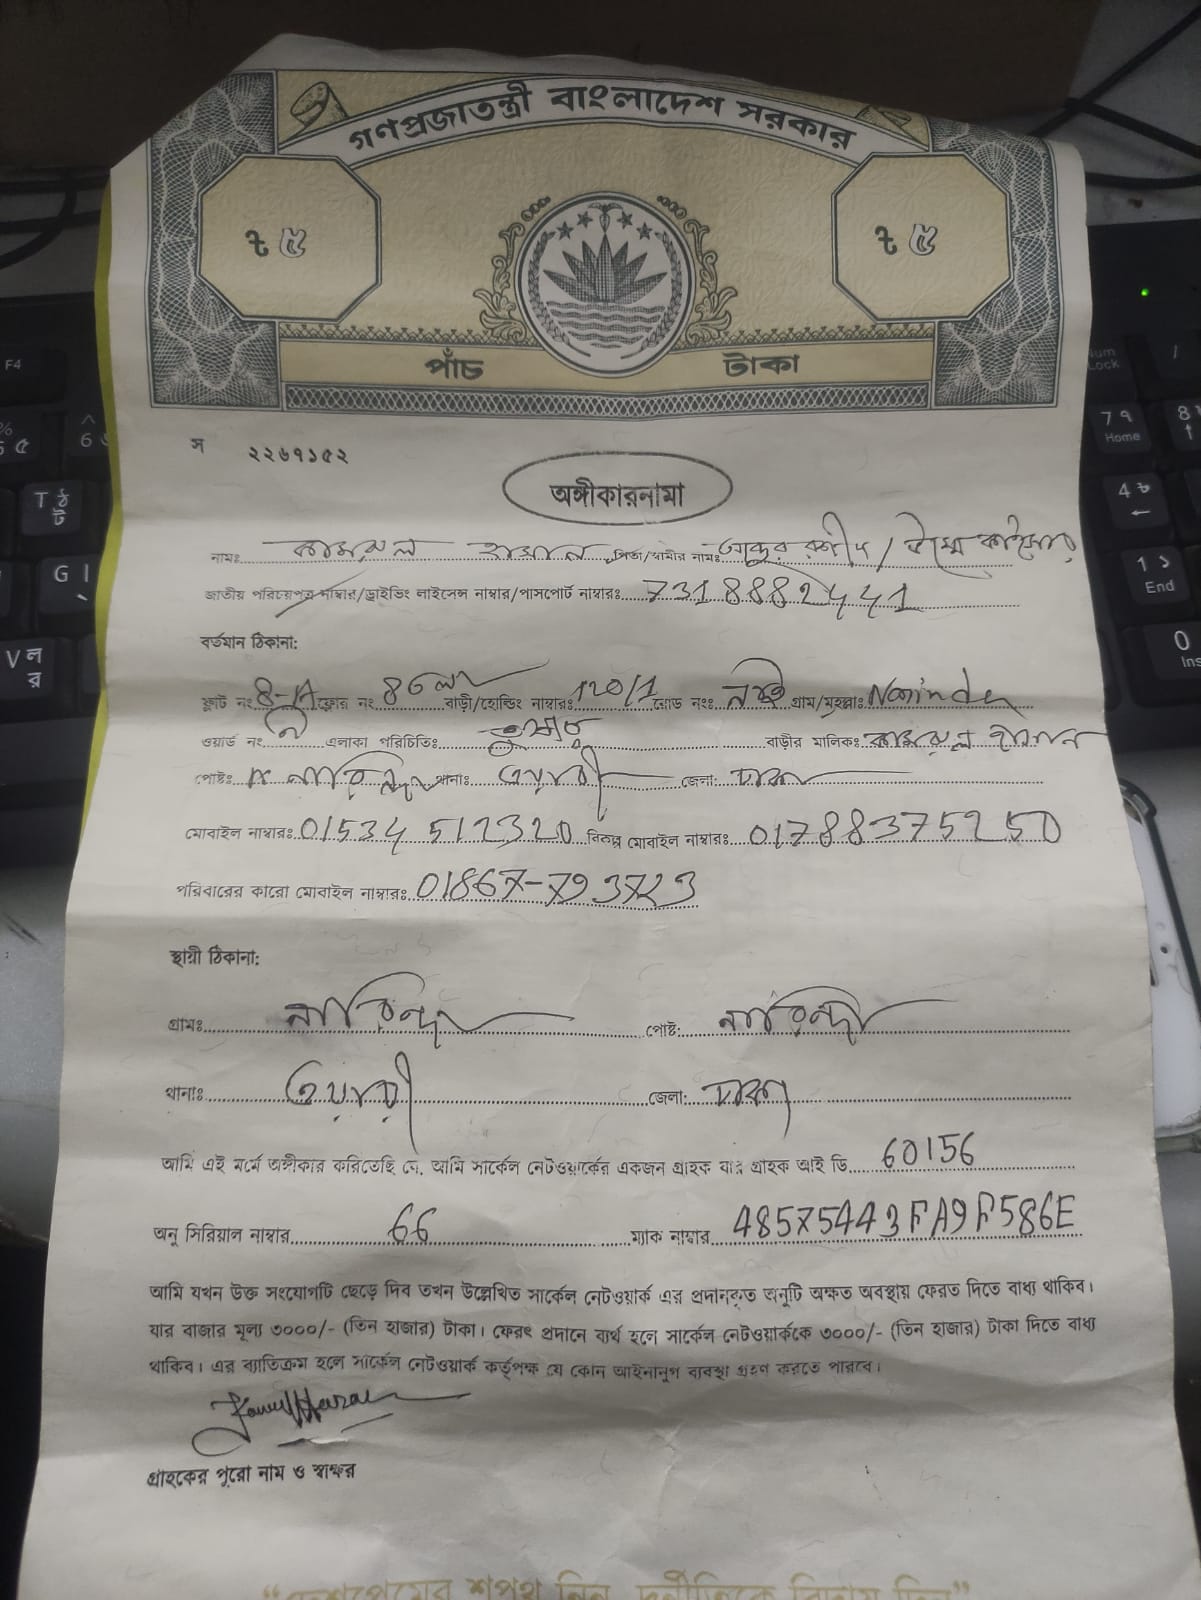 গণপ্রজাতন্ত্রী বাংলাদেশ সরকার
৳ ৫ ৳ ৫
পাঁচ টাকা
স ২২৬৭১৫২
অঙ্গীকারনামা
নামঃ কামরুল হাসান পিতা/স্বামীর নামঃ
জাতীয় পরিচয়পত্র নাম্বার/ড্রাইভিং লাইসেন্স নাম্বার/পাসপোর্ট নাম্বারঃ 7318882441
বর্তমান ঠিকানা:
ফ্লাট নং 8-A ফ্লোর নং 8 বাড়ী/হোল্ডিং নাম্বারঃ 120/1 রোড নংঃ নাই গ্রাম/মহল্লাঃ Narinda
ওয়ার্ড নং এলাকা পরিচিতিঃ বাড়ীর মালিকঃ কামরুল হাসান
পোষ্টঃ নারিন্দা থানাঃ ওয়ারী জেলা: ঢাকা
মোবাইল নাম্বারঃ 01534512320 বিকল্প মোবাইল নাম্বারঃ 01788375250
পরিবারের কারো মোবাইল নাম্বারঃ 01867-793723
স্থায়ী ঠিকানা:
গ্রামঃ নারিন্দা পোষ্ট: নারিন্দা
থানাঃ ওয়ারী জেলা: ঢাকা
আমি এই মর্মে অঙ্গীকার করিতেছি যে, আমি সার্কেল নেটওয়ার্কের একজন গ্রাহক যার গ্রাহক আই ডি 60156
অনু সিরিয়াল নাম্বার 66 ম্যাক নাম্বার 48575443FA9F586E
আমি যখন উক্ত সংযোগটি ছেড়ে দিব তখন উল্লেখিত সার্কেল নেটওয়ার্ক এর প্রদানকৃত অনুটি অক্ষত অবস্থায় ফেরত দিতে বাধ্য থাকিব।
যার বাজার মূল্য ৩০০০/- (তিন হাজার) টাকা। ফেরৎ প্রদানে ব্যর্থ হলে সার্কেল নেটওয়ার্ককে ৩০০০/- (তিন হাজার) টাকা দিতে বাধ্য
থাকিব। এর ব্যাতিক্রম হলে সার্কেল নেটওয়ার্ক কর্তৃপক্ষ যে কোন আইনানুগ ব্যবস্থা গ্রহণ করতে পারবে।
গ্রাহকের পুরো নাম ও স্বাক্ষর
“দেশপ্রেমের শপথ নিন, দুর্নীতিকে বিদায় দিন”
F4
6
T ঠ ট
G ।
V ল র
Num Lock
/
7 ৭ Home
8
4 ৳
1 ১ End
0 Ins